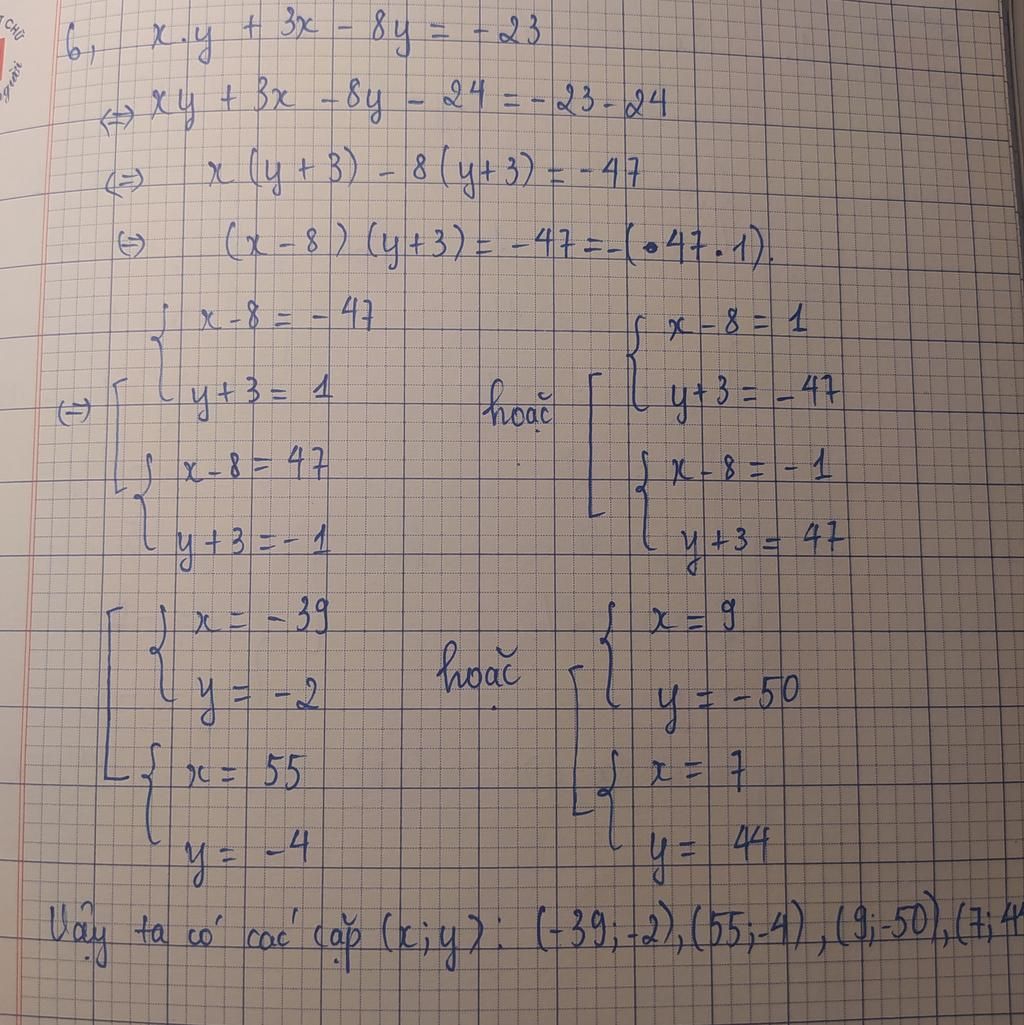 6, x.y + 3x - 8y = -23
⇔ xy + 3x - 8y - 24 = -23 - 24
⇔ x (y + 3) - 8 (y+3) = -47
⇔ (x - 8) (y+3) = -47 = -(47 . 1).
x - 8 = -47
y + 3 = 1
⇔
x - 8 = 47
y + 3 = -1
hoặc
x - 8 = 1
y + 3 = -47
x - 8 = -1
y + 3 = 47
x = -39
y = -2
x = 55
y = -4
hoặc
x = 9
y = -50
x = 7
y = 44
Vậy ta có các cặp (x; y) : (-39; -2), (55; -4), (9; -50), (7; 44